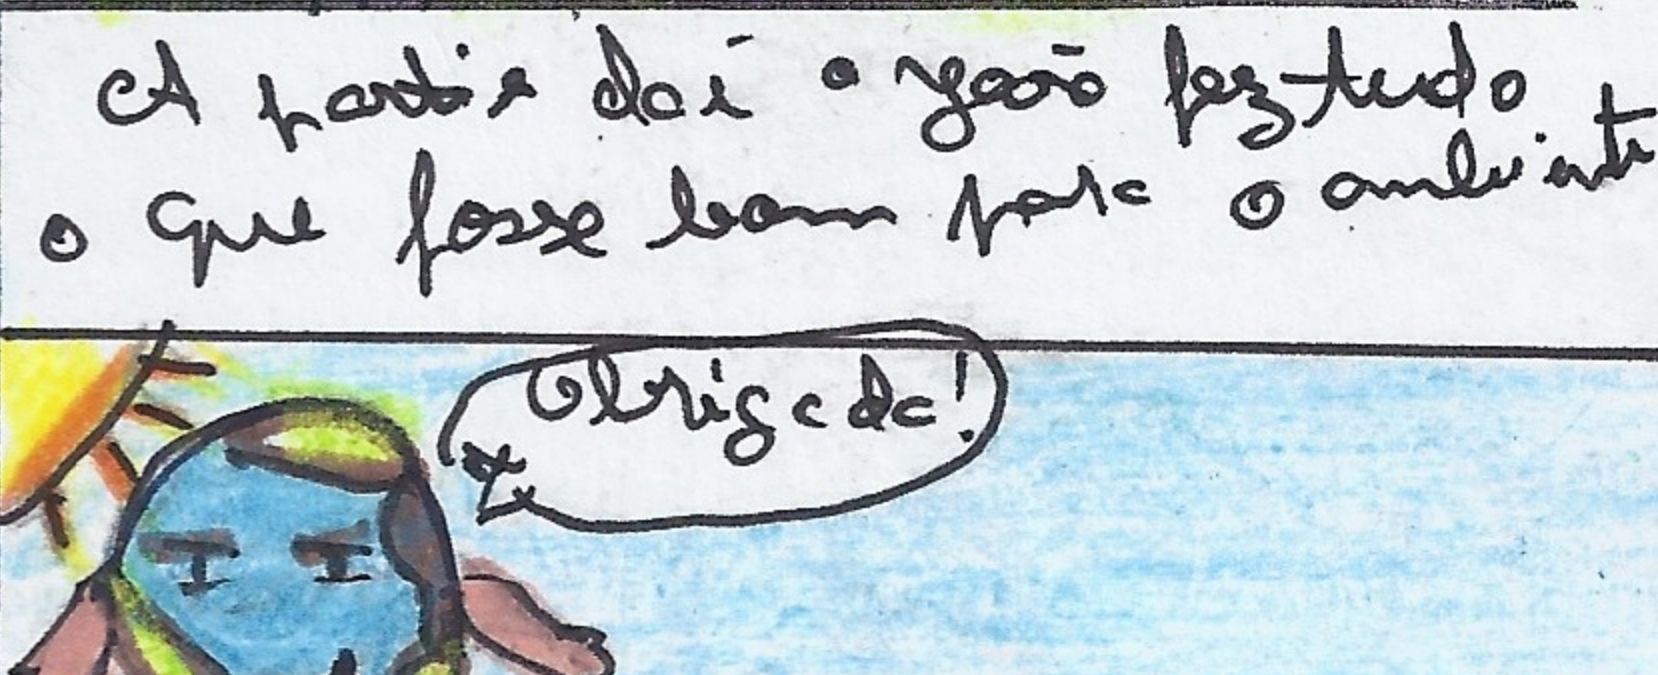 A partir daí o João fez tudo
o que fosse bom para o ambiente
Obrigada!